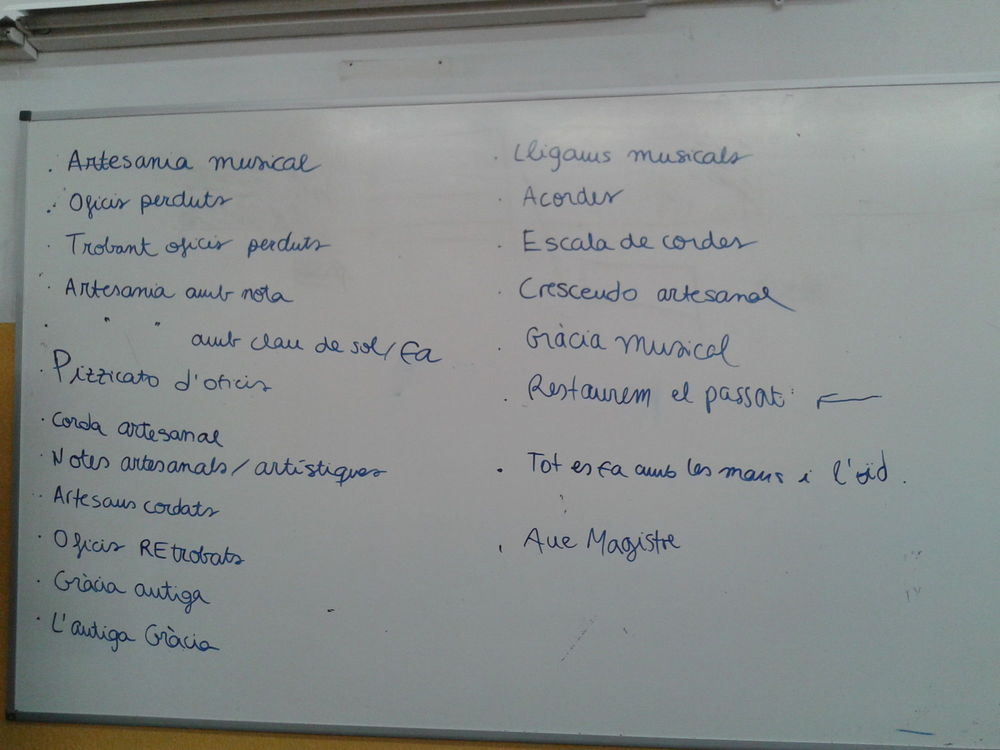 · Artesania musical
· Oficis perduts
· Trobant oficis perduts
· Artesania amb nota
· " " amb clau de sol/fa
· Pizzicato d'oficis
· Corda artesanal
· Notes artesanals/artístiques
· Artesans cordats
· Oficis REtrobats
· Gràcia antiga
· L'antiga Gràcia
· Lligams musicals
· Acordes
· Escala de cordes
· Crescendo artesanal
· Gràcia musical
· Restaurem el passat ←
· Tot es fa amb les mans i l'oïd.
· Ave Magistre